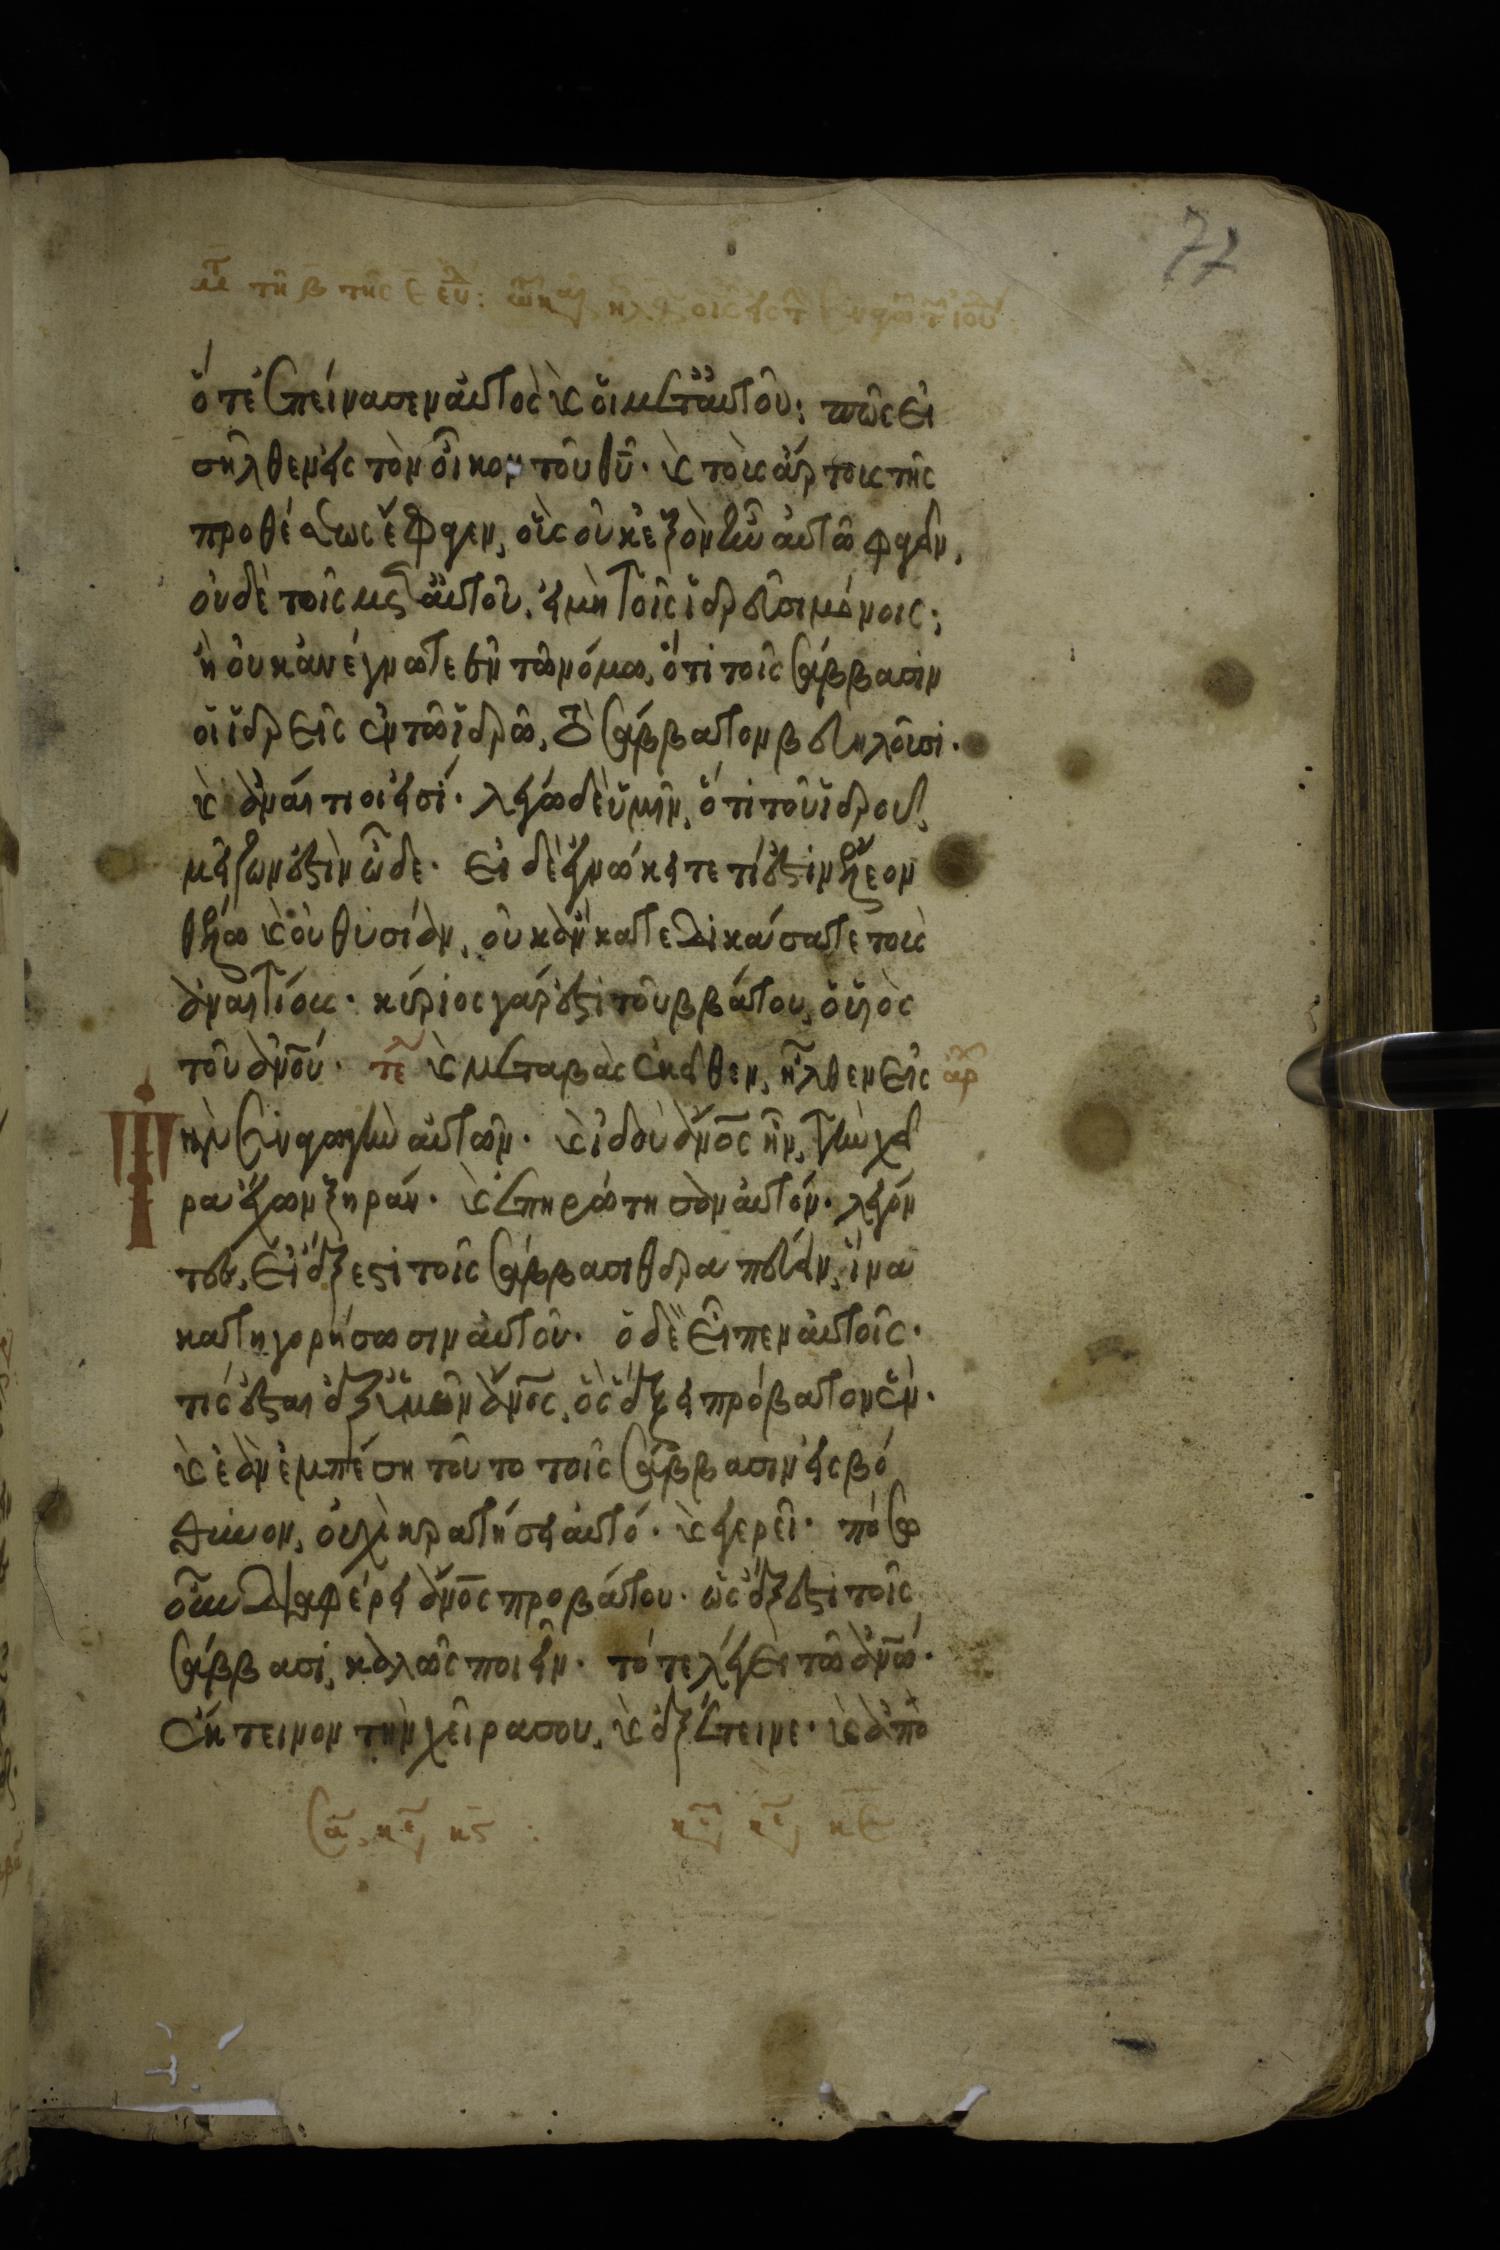 77
ὅτε ἐπείνασεν αὐτὸς κὶ οἱ μετ' αὐτοῦ; πῶς εἰ
σῆλθεν εἰς τὸν οἶκον τοῦ θῦ. κὶ τοὺς ἄρτους τῆς
προθέσεως ἔφαγεν, οἷς οὐκ ἐξὸν ἦν αὐτῶ φαγεῖν,
οὐδὲ τοῖς μετ' αὐτοῦ, εἰ μὴ τοῖς ἱερεῦσι μόνοις;
ἢ οὐκ ἀνέγνωτε ἐν τῶ νόμω, ὅτι τοῖς σάββασιν
οἱ ἱερεῖς ἐν τῶ ἱερῶ, τὸ σάββατον βεβηλοῦσι.
κὶ ἀναίτιοί εἰσί. λέγω δὲ ὑμῖν, ὅτι τοῦ ἱεροῦ
μεῖζων ἐστὶν ὧδε. εἰ δὲ ἐγνώκειτε τί ἐστιν ἔλεον
θέλω κὶ οὐ θυσίαν, οὐκ ἂν κατεδικάσατε τοὺς
ἀναιτίους. κύριος γάρ ἐστι τοῦ σαββάτου, ὁ υἱὸς
τοῦ ἀνου. τε κὶ μεταβὰς ἐκεῖθεν, ἦλθεν εἰς αρ
τὴν συναγωγὴν αὐτῶν. κὶ ἰδοὺ ἄνος ἦν, τὴν χεῖ
ρα ἔχων ξηράν. κὶ ἐπηρώτησαν αὐτόν. λέγον
τες, εἰ ἔξεστι τοῖς σάββασι θεραπεύειν, ἵνα
κατηγορήσωσιν αὐτοῦ. ὁ δὲ εἶπεν αὐτοῖς.
τίς ἔσται ἐξ ὑμῶν ἄνος, ὃς ἕξει πρόβατον ἕν.
κὶ ἐὰν ἐμπέση τοῦτο τοῖς σάββασιν εἰς βό
θυνον, οὐχὶ κρατήσει αὐτό. κὶ ἐγερεῖ. πόσω
οὖν διαφέρει ἄνος προβάτου. ὥστε ἔξεστι τοῖς
σάββασι, καλῶς ποιεῖν. τότε λέγει τῶ ἀνω.
ἔκτεινον τὴν χεῖρα σου, κὶ ἐξέτεινε. κὶ ἀπο